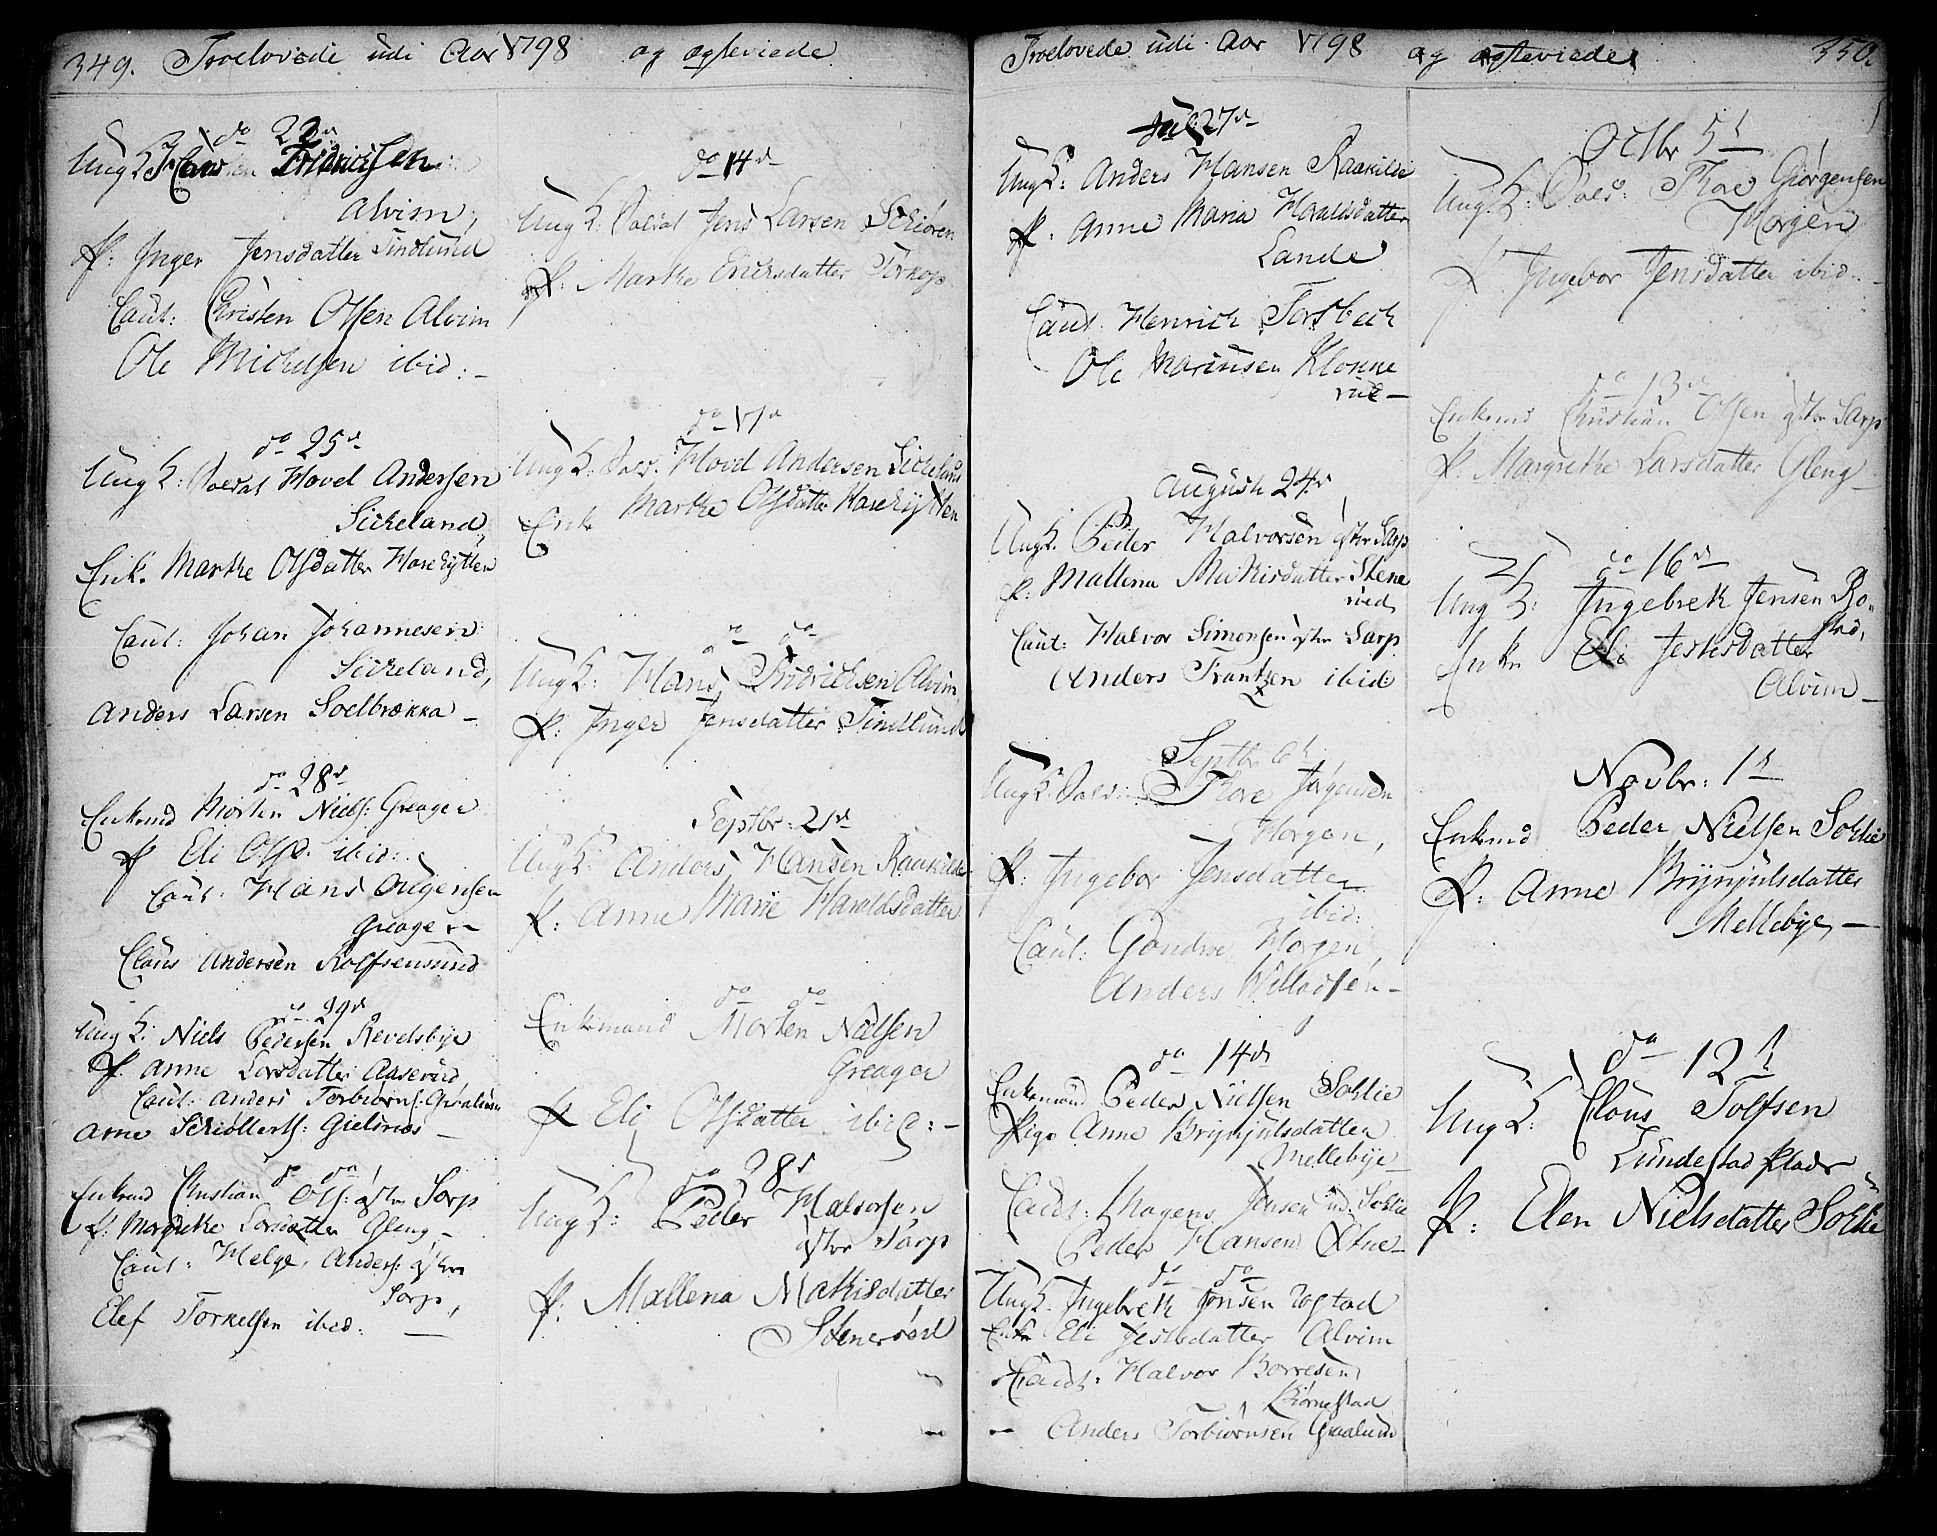 349. Troelovede udi Aar 1798 og ægteviede
do 22d
Ung K. Hans Fridrichsen
Alvim,
P. Inger Jensdatter Tindlund
Caut: Christen Olsen Alvim
Ole Michelsen ibid: -
do 25d
Ung K: Soldat Hovel Andersen
Sickeland,
Enk. Marthe Olsdatter Harehytten
Caut: Johan Johannesen
Sickeland,
Anders Larsen Soelbrækka -
do 28d
Enkemd Morten Niels: Greager
P. Eli Olsd. ibid:
Caut: Hans Augensen
Greager -
Claus Andersen Rolfsensund
do 29d
Ung K: Niels Pedersen Revelsbye
P. Anne Larsdatter Aaserud
Caut: Anders Torbiørns: Graalum
Arne Schiøllerts: Gielsnes -
do do
Enkemd Christian Ols: østre Sarp
P. Margrethe Larsdatter Gleng -
Caut: Helge Anders: østre
Sarp,
Elef Torkelsen ibid: -
do 14d
Ung K: Soldat Jens Larsen Schiøren
P. Marthe Erichsdatter Torkop
do 17d
Ung K: Sold. Hovel Andersen Sickeland
Enk Marthe Olsdatter Harehytten
do do
Ung K: Hans Fridrichsen Alvim
P. Inger Jensdatter Tindlund
Septbr: 21d
Ung K: Anders Hansen Raakilde
P: Anne Marie Haraldsdatter
do do
Enkemand Morten Nielsen
Greager
P. Eli Olsdatter ibid: -
do 28d
Ung K: Peder Halvorsen
østre Sarp
P: Mallena Mathisdatter
Stenerød
Troelovede udi Aar 1798 og ægteviede 350.
Jul 27d
Ung K: Anders Hansen Raakilde
P. Anne Maria Haraldsdatter
Lande
Caut Henrich Torsbech
Ole Mariusen Klonne
rud -
August 24d
Ung K. Peder Halvorsen østre Sarp
P: Mallena Mathisdatter Stene
rød,
Caut: Halvor Simonsen østre Sarp
Anders Frantzen ibid
Septbr 6t
Ung K. Sold: Thore Jørgensen
Horgen,
P. Ingebor Jensdatter
ibid:
Caut: Gondroe Horgen,
Anders Willadsen -
do 14d
Enkemand Peder Nielsen Sohlie
Pige Anne Brynjulsdatter
Mellebye -
Caut: Mogens Jensen Sohlie
Peder Hansen Stue -
do do
Ung K. Ingebreth Jensen Rostad
Enke Eli Jesthsdatter Alvim
Caut: Halvor Borresen
Biørnestad
Anders Torbiørnsen Graalum
Octbr 5t
Ung K: Sold: Thore Giørgensen
Horgen
P Ingebor Jensdatter ibid -
do 13d
Enkemd Christian Olsen østre Sarp
P. Margrethe Larsdatter Gleng -
do 16d
Ung K: Ingebreth Jensen Ro-
stad,
Enke Eli Jesthsdatter
Alvim -
Novbr: 1t
Enkemd Peder Nielsen Sohlie
P: Anne Brynjulsdatter
Mellebye, -
do 12t
Ung K: Claus Tolfsen
Lundestad Plads
P: Elen Nielsdatter Sohlie